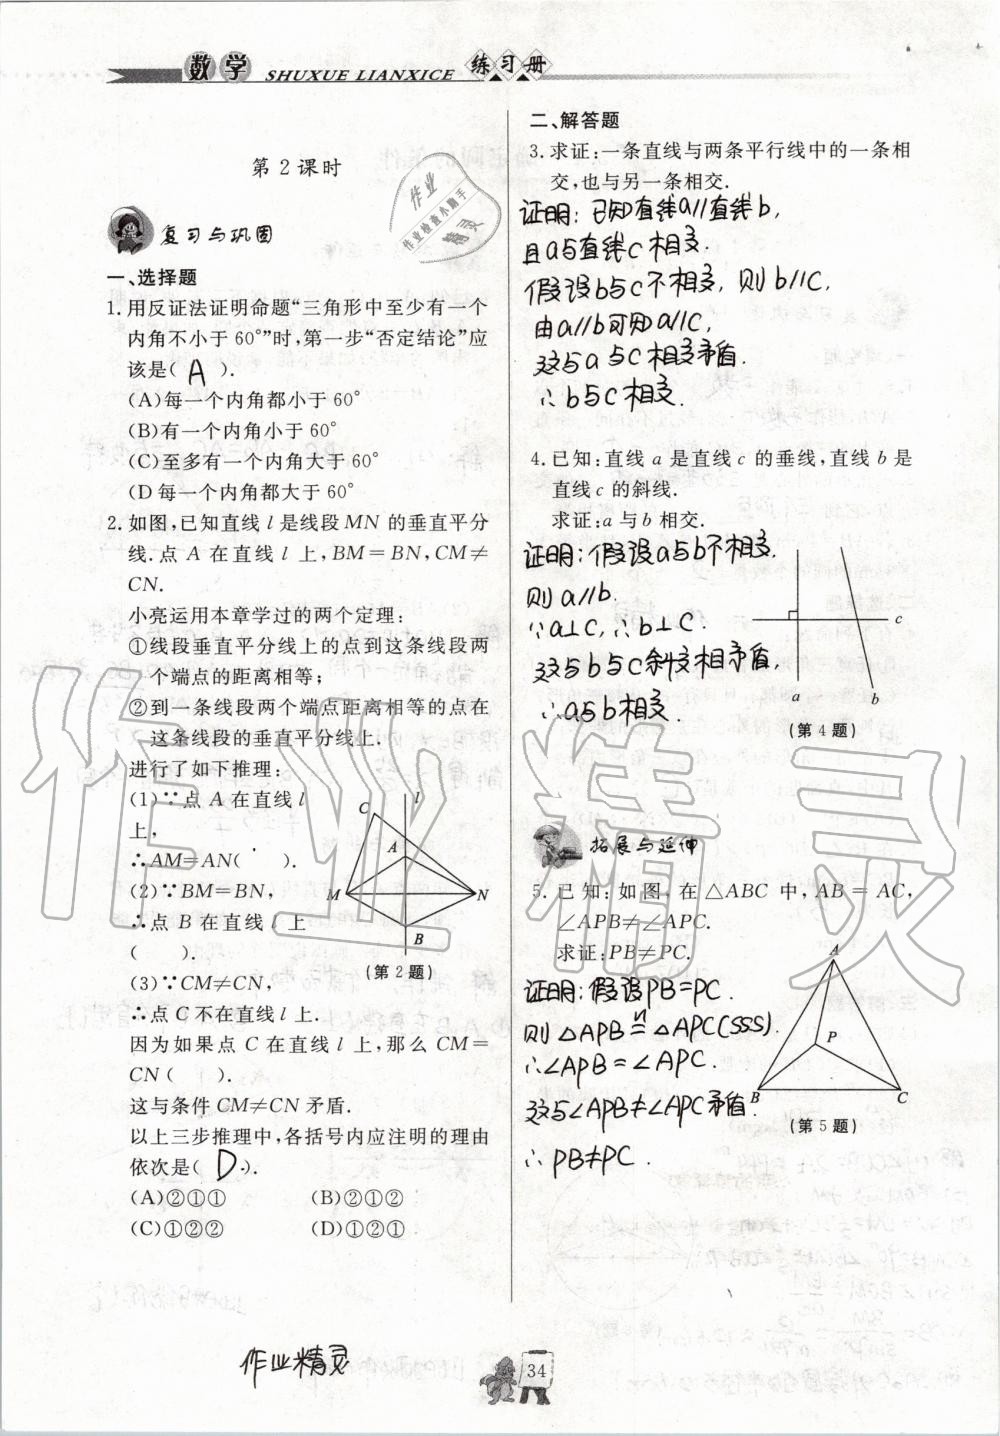 数学 SHUXUE LIANXICE 练习册
第 2 课时
作业
作业检查小助手
精灵
复习与巩固
一、选择题
1. 用反证法证明命题“三角形中至少有一个
内角不小于 60°”时,第一步“否定结论”应
该是( A ).
(A)每一个内角都小于 60°
(B)有一个内角小于 60°
(C)至多有一个内角大于 60°
(D 每一个内角都大于 60°
2. 如图,已知直线 l 是线段 MN 的垂直平分
线.点 A 在直线 l 上,BM=BN,CM≠
CN.
小亮运用本章学过的两个定理:
①线段垂直平分线上的点到这条线段两
个端点的距离相等;
②到一条线段两个端点距离相等的点在
这条线段的垂直平分线上.
进行了如下推理:
(1)∵点 A 在直线 l
上,
∴AM=AN( ).
(2)∵BM=BN,
∴点 B 在直线 l 上
( ).
(3)∵CM≠CN,
∴点 C 不在直线 l 上.
因为如果点 C 在直线 l 上,那么 CM=
CN( ).
这与条件 CM≠CN 矛盾.
以上三步推理中,各括号内应注明的理由
依次是( D ).
(A)②①① (B)②①②
(C)①②② (D)①②①
C l
A
M N
B
(第 2 题)
二、解答题
3. 求证:一条直线与两条平行线中的一条相
交,也与另一条相交.
证明:已知直线a//直线b,
且a与直线c相交.
假设b与c不相交,则b//C,
由a//b可知a//C,
这与a与C相交矛盾.
∴b与C相交.
4. 已知:直线 a 是直线 c 的垂线,直线 b 是
直线 c 的斜线.
求证:a 与 b 相交.
证明:假设a与b不相交.
则a//b.
∵a⊥C,∴b⊥C.
这与b与C斜交相矛盾,
∴a与b相交.
c
a b
(第 4 题)
拓展与延伸
5. 已知:如图,在△ABC 中,AB=AC,
∠APB≠∠APC.
求证:PB≠PC.
证明:假设PB=PC.
则△APB≌△APC(SSS).
∴∠APB=∠APC.
这与∠APB≠∠APC矛盾.
∴PB≠PC.
A
P
B C
(第 5 题)
作业精灵
作业精灵
34